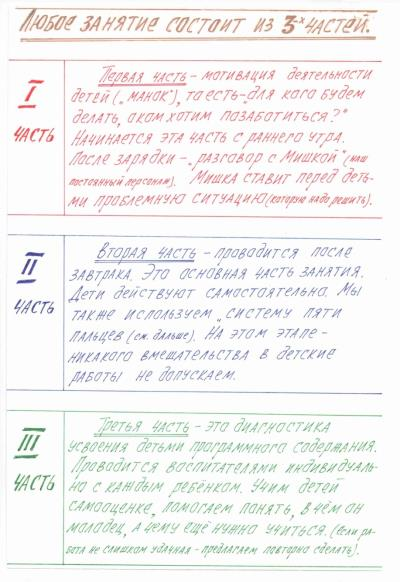 Любое занятие состоит из 3-х частей.
I
часть
Первая часть - мотивация деятельности
детей („манок"), то есть - „для кого будем
делать, о ком хотим позаботиться?"
Начинается эта часть с раннего утра.
После зарядки - „разговор с Мишкой" (наш
постоянный персонаж). Мишка ставит перед деть-
ми проблемную ситуацию (которую надо решить).
II
часть
Вторая часть - проводится после
завтрака. Это основная часть занятия.
Дети действуют самостоятельно. Мы
также используем „систему пяти
пальцев (см. дальше). На этом этапе -
никакого вмешательства в детские
работы не допускаем.
III
часть
Третья часть - это диагностика
усвоения детьми программного содержания.
Проводится воспитателями индивидуаль-
но с каждым ребёнком. Учим детей
самооценке, помогаем понять, в чём он
молодец, а чему ещё нужно учиться. (Если ра-
бота не слишком удачная - предлагаем повторно сделать).